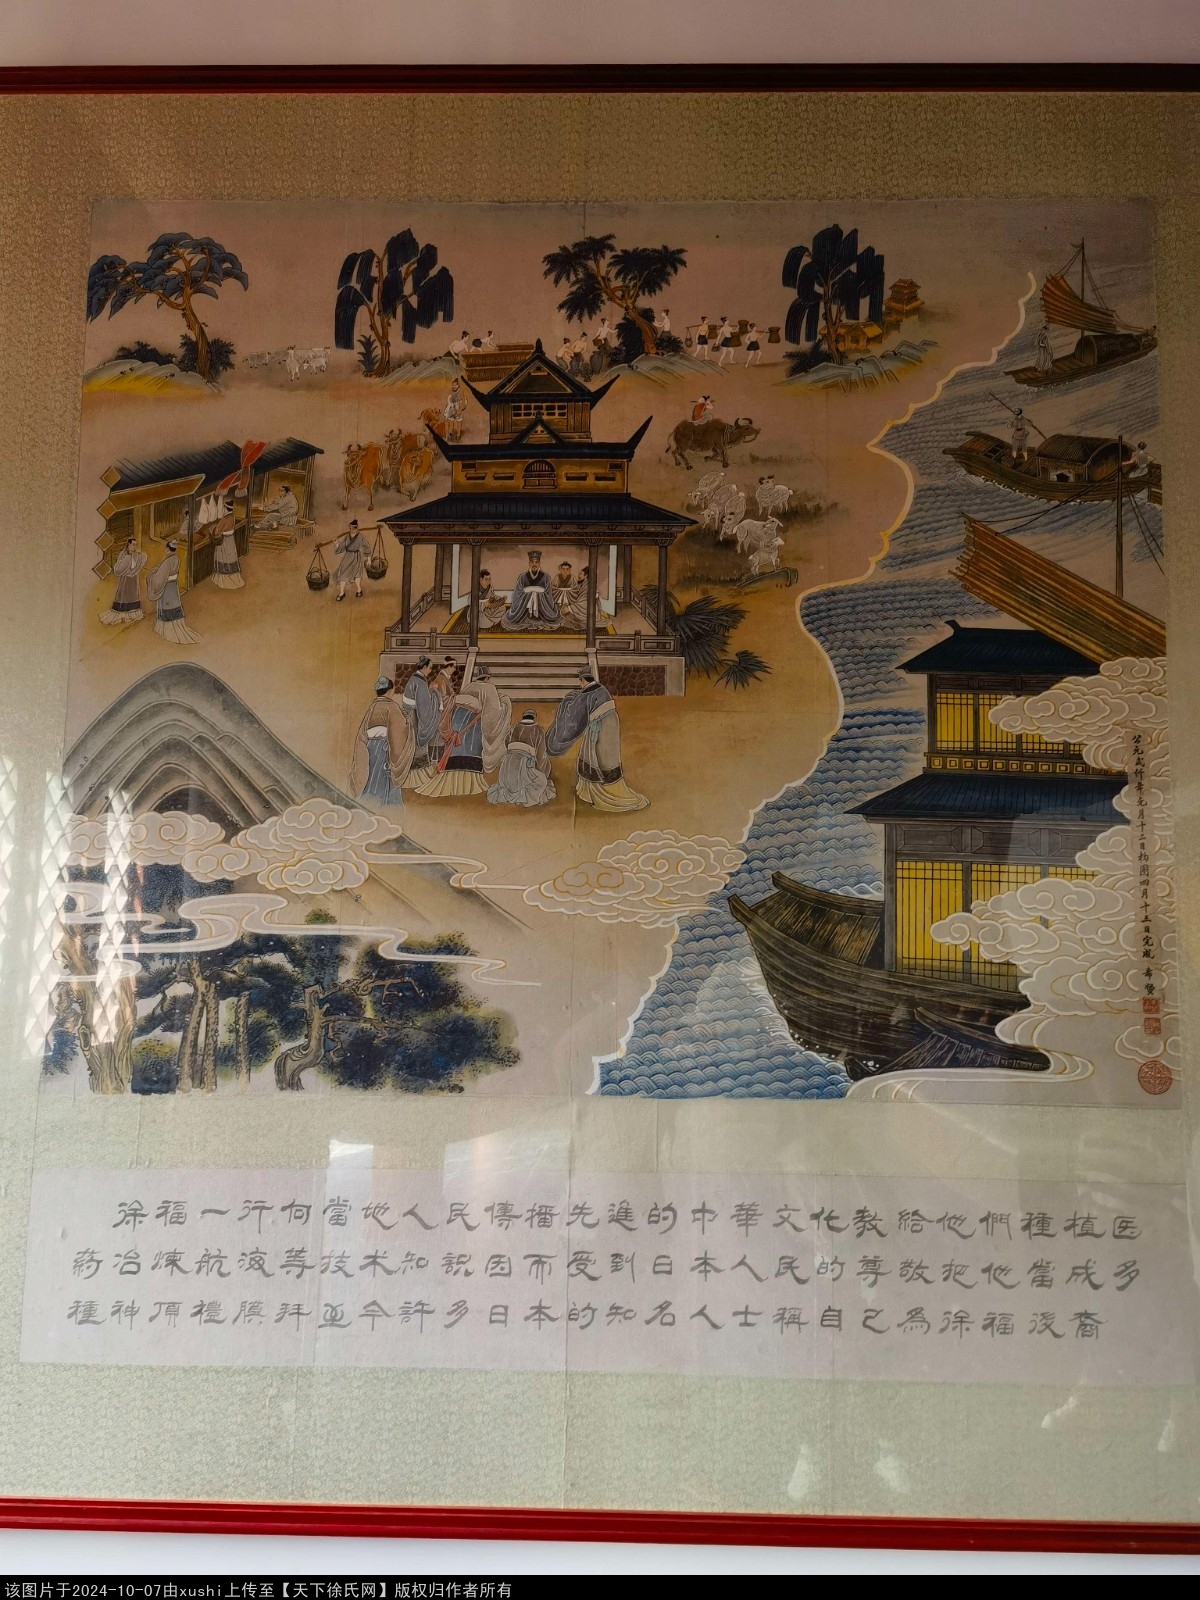 公元貳仟年元月十二日构图四月十三日完成 希贤
徐福一行向當地人民傳播先進的中華文化教給他們種植医
药冶煉航海等技术知識因而受到日本人民的尊敬把他當成多
種神頂禮膜拜至今許多日本的知名人士稱自己為徐福後裔
该图片于2024-10-07由xushi上传至【天下徐氏网】版权归作者所有